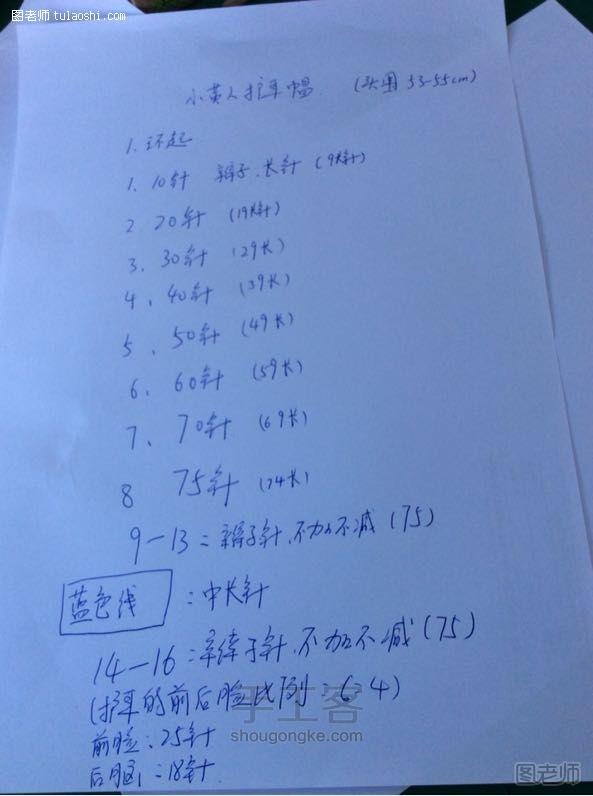 图老师 tulaoshi.com
小黄人护耳帽 (头围 53-55cm)
1. 环起
1. 10针 辫子、长针 (9长针)
2 20针 (19长针)
3、30针 (29长)
4、40针 (39长)
5、50针 (49长)
6、60针 (59长)
7、70针 (69长)
8 75针 (74长)
9-13:辫子针,不加不减(75)
蓝色线 :中长针
14-16:辫子针,不加不减(75)
(护耳的前后脸比例:6:4)
前脸:25针
后脑:18针
手工客
shougongke.com
图老师